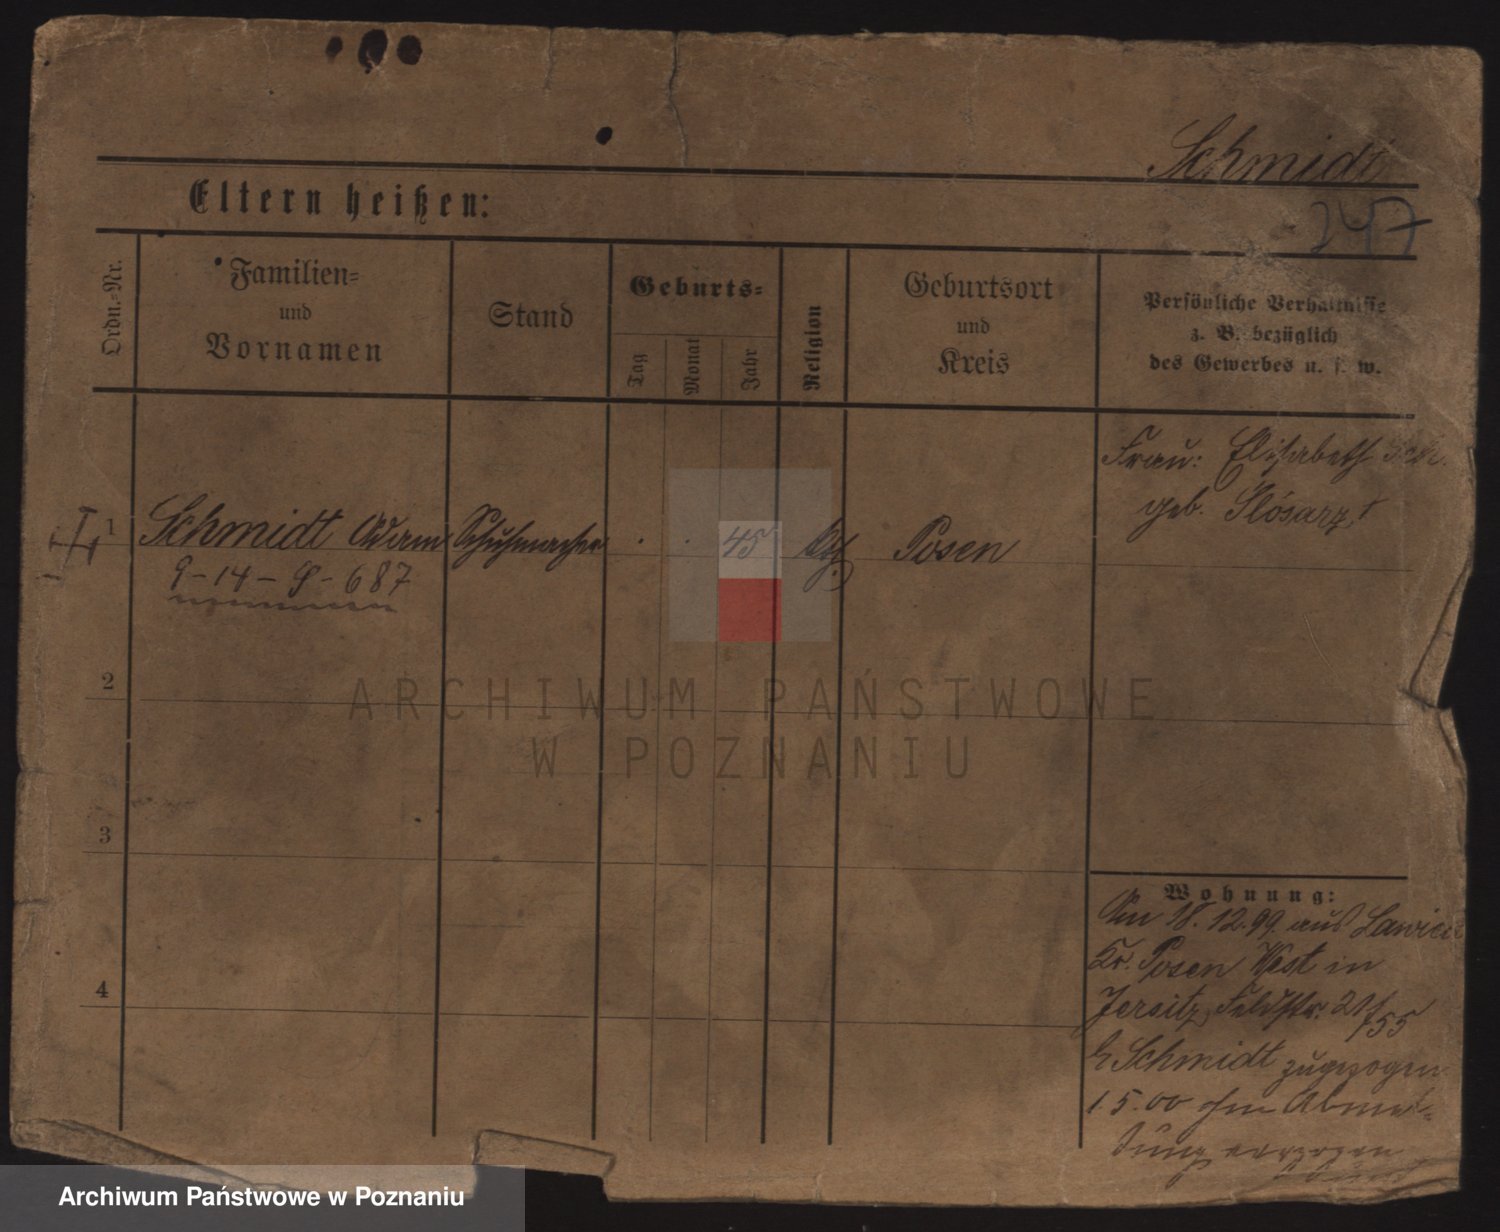 Schmidt
Eltern heißen:
247
Ordn.-Nr.
Familien-
und
Vornamen
Stand
Geburts-
Tag
Monat
Jahr
Religion
Geburtsort
und
Kreis
Persönliche Verhältnisse
z. B. bezüglich
des Gewerbes u. s. w.
Frau: Elisabeth
geb.
1 Schmidt Adam Schuhmacher . . 45 Kth. Posen
9-14-9-687
2
3
4
Wohnung:
Am 18.12.99. aus
Kr. Posen West in
Jersitz, Feldstr. 21/55
Schmidt zugezogen
1.5.00 ohne Abmel-
dung verzogen
ARCHIWUM PAŃSTWOWE
W POZNANIU
Archiwum Państwowe w Poznaniu